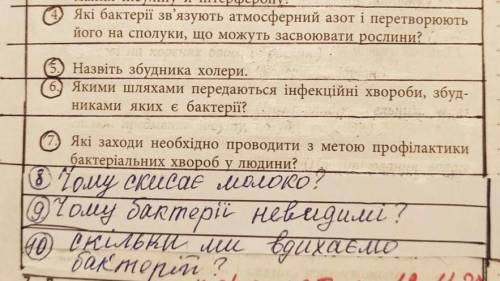 4. Які бактерії зв'язують атмосферний азот і перетворюють
його на сполуки, що можуть засвоювати рослини?
5. Назвіть збудника холери.
6. Якими шляхами передаються інфекційні хвороби, збуд-
никами яких є бактерії?
7. Які заходи необхідно проводити з метою профілактики
бактеріальних хвороб у людини?
8 Чому скисає молоко?
9 Чому бактерії невидимі?
10 скільки ми вдихаємо
бакторій?